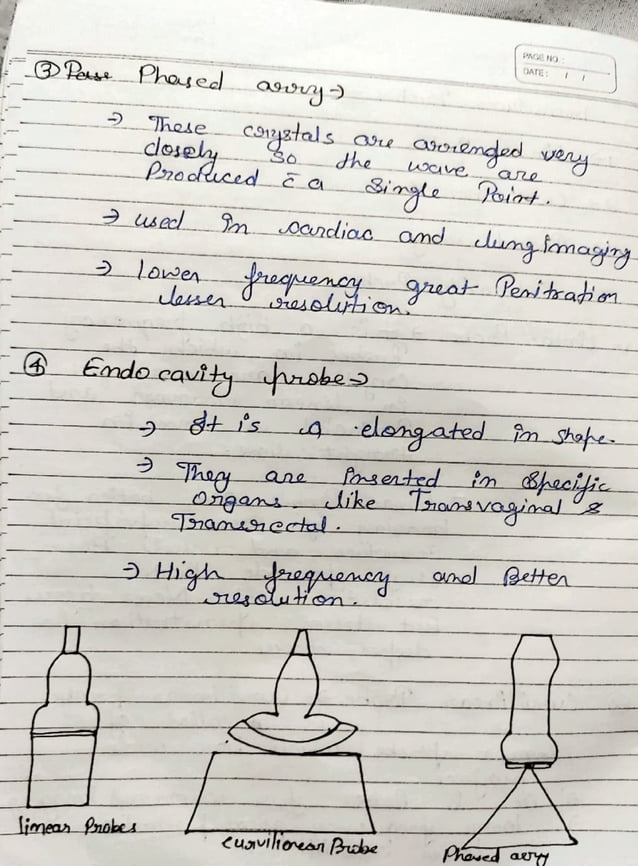 PAGE NO.:
DATE: / /
③ Phased array→
→ These crystals are arrenged very
closely so the wave are
Produced c̄ a single Point.
→ used in cardiac and lung imaging
→ lower frequency great Penitration
lesser resolution.
④ Endo cavity probe→
→ It is a elongated in shape.
→ They are inserted in specific
organs. like Transvaginal &
Transrectal.
→ High frequency and Better
resolution.
linear Probes
curvilinear Probe
Phased array